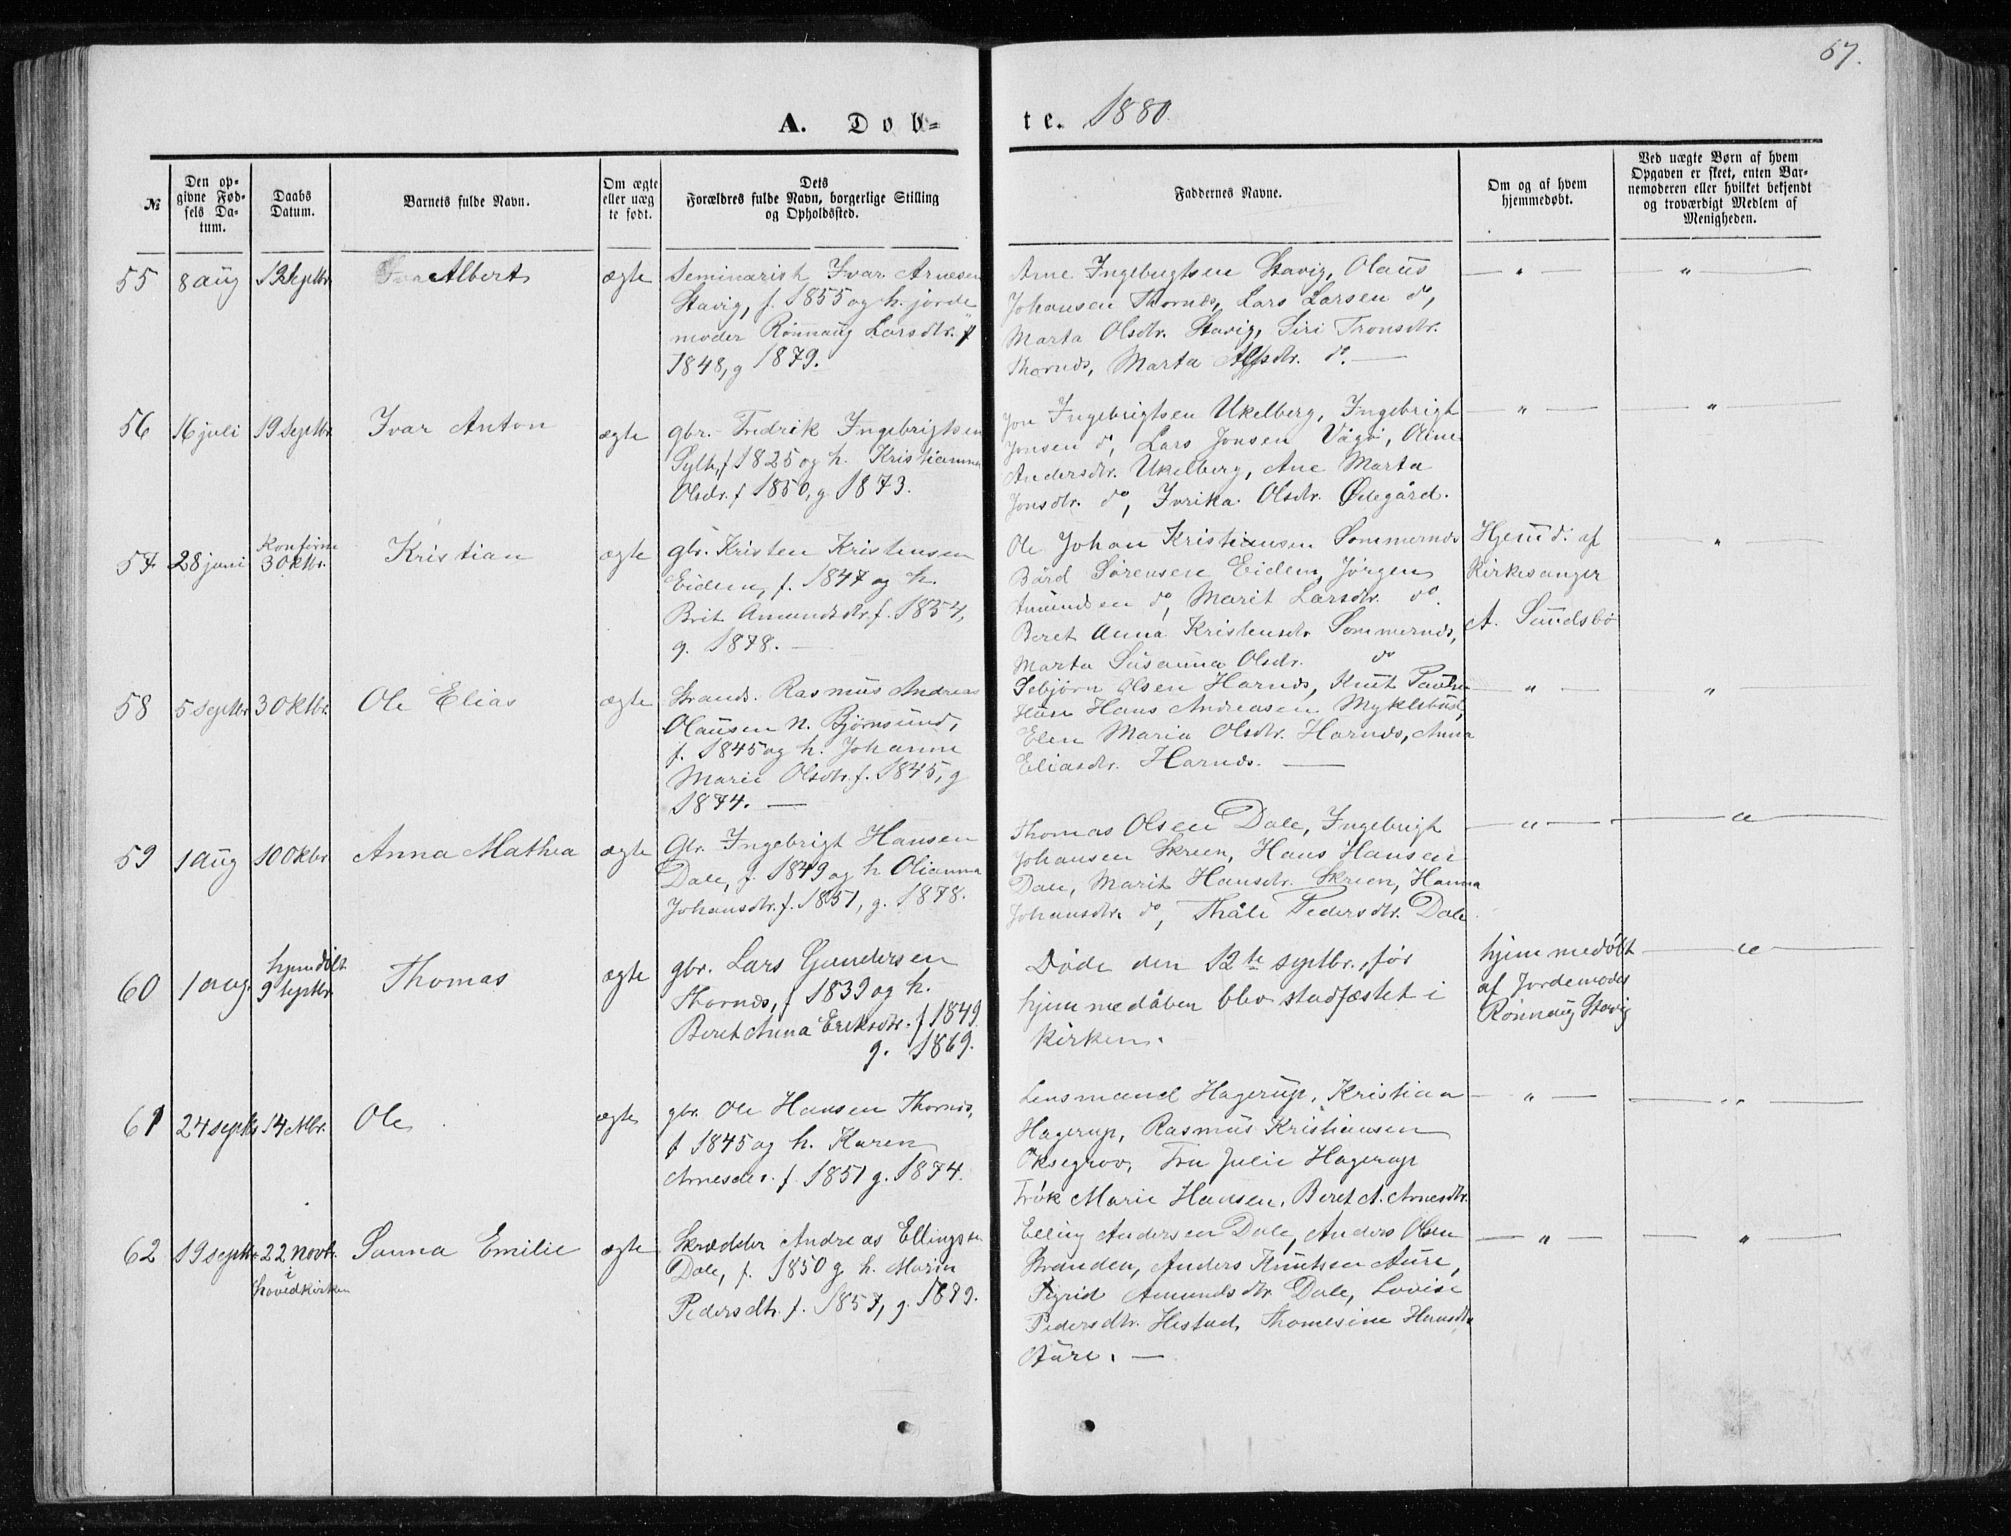 57.
A. Döb=
te. 1880.
№
Den op-
givne Fød-
sels Da-
tum.
Daabs
Datum.
Barnets fulde Navn.
Om ægte
eller uæg
te født.
Dets
Forældres fulde Navn, borgerlige Stilling
og Opholdssted.
Faddernes Navne.
Om og af hvem
hjemmedøbt.
Ved uægte Børn af hvem
Opgaven er skeet, enten Bar-
nemoderen eller hvilket bekjendt
og troværdigt Medlem af
Menigheden.
55 8 aug 12 Septbr. Albert ægte
Seminarist Ivar Arnesen
Stavig, f. 1855 og h. jorde
moder Rönnaug Larsdtr. f
1848, g 1879.
Arne Ingebrigtsen Stavig, Olaus
Johansen Thornæs, Lars Larsen do,
Marta Olsdtr. Stavig, Siri Tronsdtr.
Thornæs, Marta Alfsdtr. do. —
— " — — " —
56 16 juli 19 Septbr. Ivar Anton ægte
gbr. Fredrik Ingebrigtsen
Sylte, f 1825 og h. Kristianna
Olsdr. f 1850, g. 1873.
Jon Ingebrigtsen Ukelberg, Ingebrigt
Jonsen do, Lars Jonsen Vågö, Aine
Andersdtr. Ukelberg, Ane Marta
Jonsdtr. do, Ivrika Olsdtr. Ødegård.
— " — — " —
57 28 juni Konfirm 3 Oktbr. Kristian ægte
gbr. Kristen Kristensen
Eidem, f. 1847 og h.
Brit Amundsdtr. f. 1854,
g. 1878. —
Ole Johan Kristiansen Sommernæs
Bård Sörensen Eidem, Jörgen
Amundsen do, Marit Larsdtr. do.
Beret Anna Kristensdtr Sommernæs,
Marta Susanna Olsdr. do
Hjemd. af
Kirkesanger
A. Sandsbö
— " —
58 5 Septbr 3 Oktbr. Ole Elias ægte
Strands. Rasmus Andreas
Olausen N. Björnsund,
f. 1845 og h. Johanne
Marie Olsdtr. f. 1845, g
1874. —
Sebjörn Olsen Harnæs, Knut Paulsen
Huse Hans Andreasen Myklebust,
Elen Maria Olsdtr. Harnæs, Anna
Eliasdtr. Harnæs. —
— " — — " —
59 1 aug 10 Oktbr. Anna Mathea ægte
Gbr. Ingebrigt Hansen
Dale, f. 1849 og h Olianna
Johansdtr. f. 1851, g. 1878.
Thomas Olsen Dale, Ingebrigt
Johansen Skreen, Hans Hansen
Dale, Marit Hansdtr. Skreen, Hanna
Johansdtr. do, Thåle Pedersdtr. Dale
— " — — " —
60 1 aug. hjemdöbt 9 Septbr. Thomas ægte
gbr. Lars Gundersen
Thornæs, f 1839 og h.
Beret Anna Eriksdtr. f 1849
g. 1869.
Döde den 12te Septbr., för
hjemmedåben blev stadfæstet i
kirken.
hjemmedöbt
af Jordemoder
Rönnaug Stavig
— " —
61 24 septbr 14 Nbr. Ole ægte
gbr. Ole Hansen Thornæs,
f 1845 og h. Karen
Arnesdtr. f. 1851 g. 1874.
Lensmand Hagerup, Kristian
Hagerup, Rasmus Kristiansen
Oksegrov, Fru Julie Hagerup
Frök Marie Hansen, Beret A. Arnesdtr.
— " — — " —
62 19 septbr. 22 Novbr. i hovedkirken Sanna Emilie ægte
Skrædder Andreas Ellingsen
Dale, f. 1850 g h. Marin
Pedersdtr. f. 1857, g. 1879.
Elling Andersen Dale, Anders Olsen
Branden, Anders Knutsen Aure,
Sigrid Amundsdtr. Dale, Lovise
Pedersdtr. Hestad, Thomesine Hansdtr
Aure. —
— " — — " —